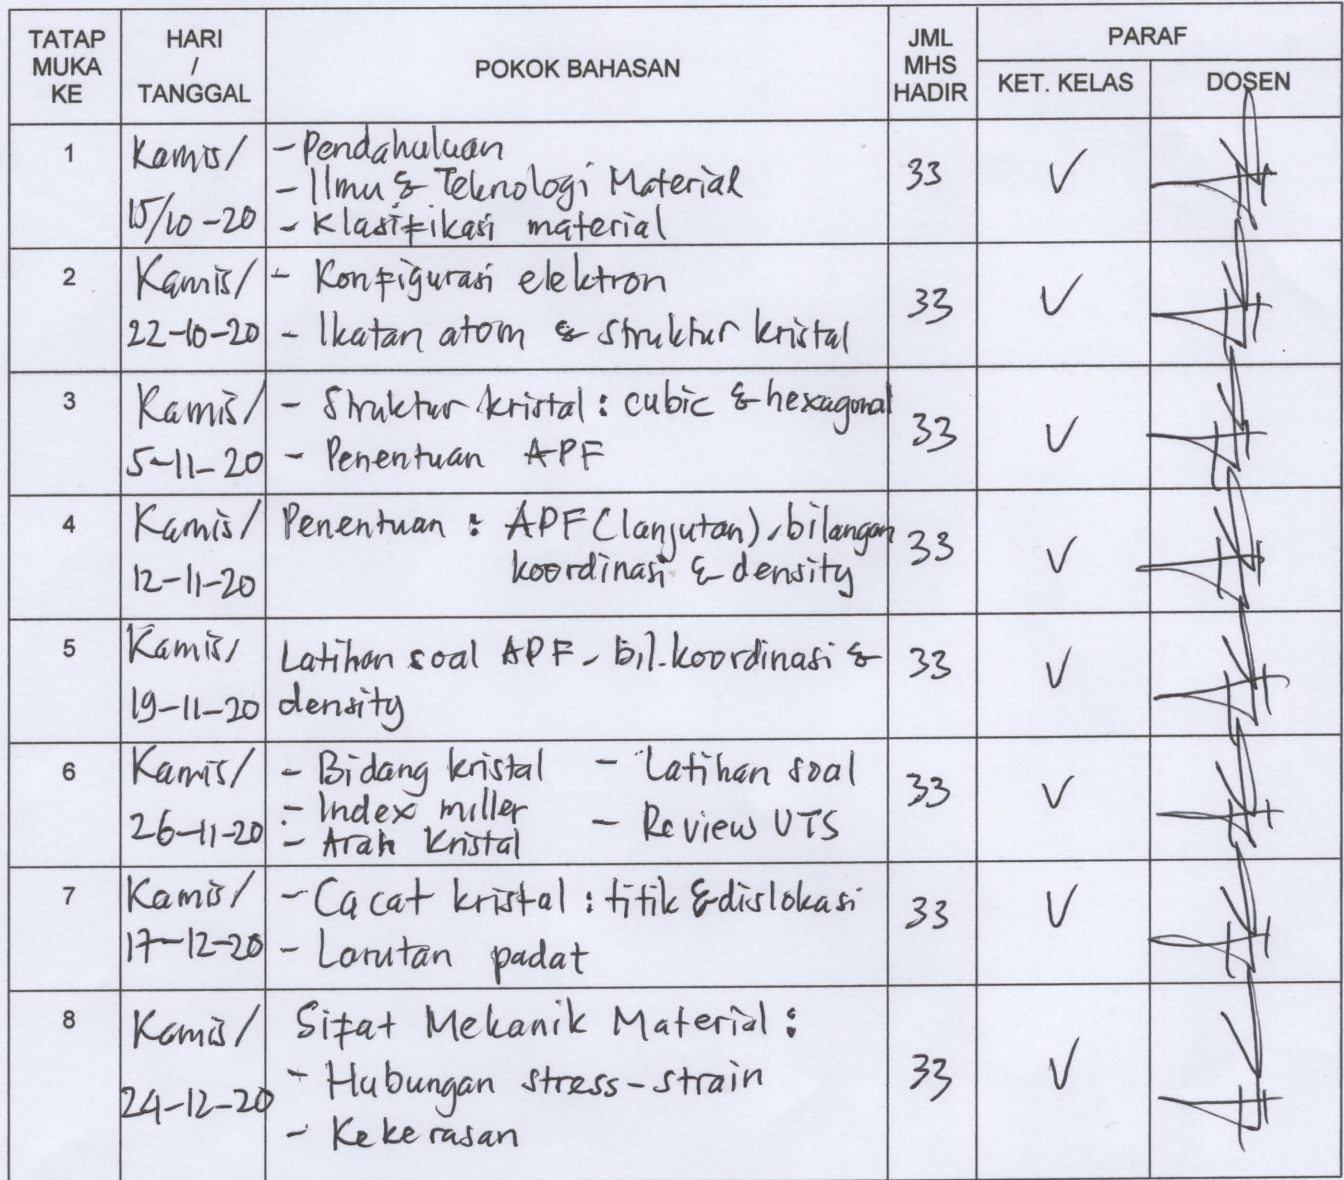 TATAP MUKA KE
HARI / TANGGAL
POKOK BAHASAN
JML MHS HADIR
PARAF
KET. KELAS
DOSEN
1
Kamis/
15/10-20
- Pendahuluan
- Ilmu & Teknologi Material
- Klasifikasi material
33
✓
2
Kamis/
22-10-20
- Konfigurasi elektron
- Ikatan atom & struktur kristal
33
✓
3
Kamis/
5-11-20
- Struktur kristal : cubic & hexagonal
- Penentuan APF
33
✓
4
Kamis/
12-11-20
Penentuan : APF (lanjutan), bilangan
koordinasi & density
33
✓
5
Kamis/
19-11-20
Latihan soal APF, bil. koordinasi &
density
33
✓
6
Kamis/
26-11-20
- Bidang kristal - Latihan soal
- Index miller
- Review UTS
- Arah kristal
33
✓
7
Kamis/
17-12-20
- Cacat kristal : titik & dislokasi
- Larutan padat
33
✓
8
Kamis/
24-12-20
Sifat Mekanik Material :
- Hubungan stress-strain
- Kekerasan
33
✓